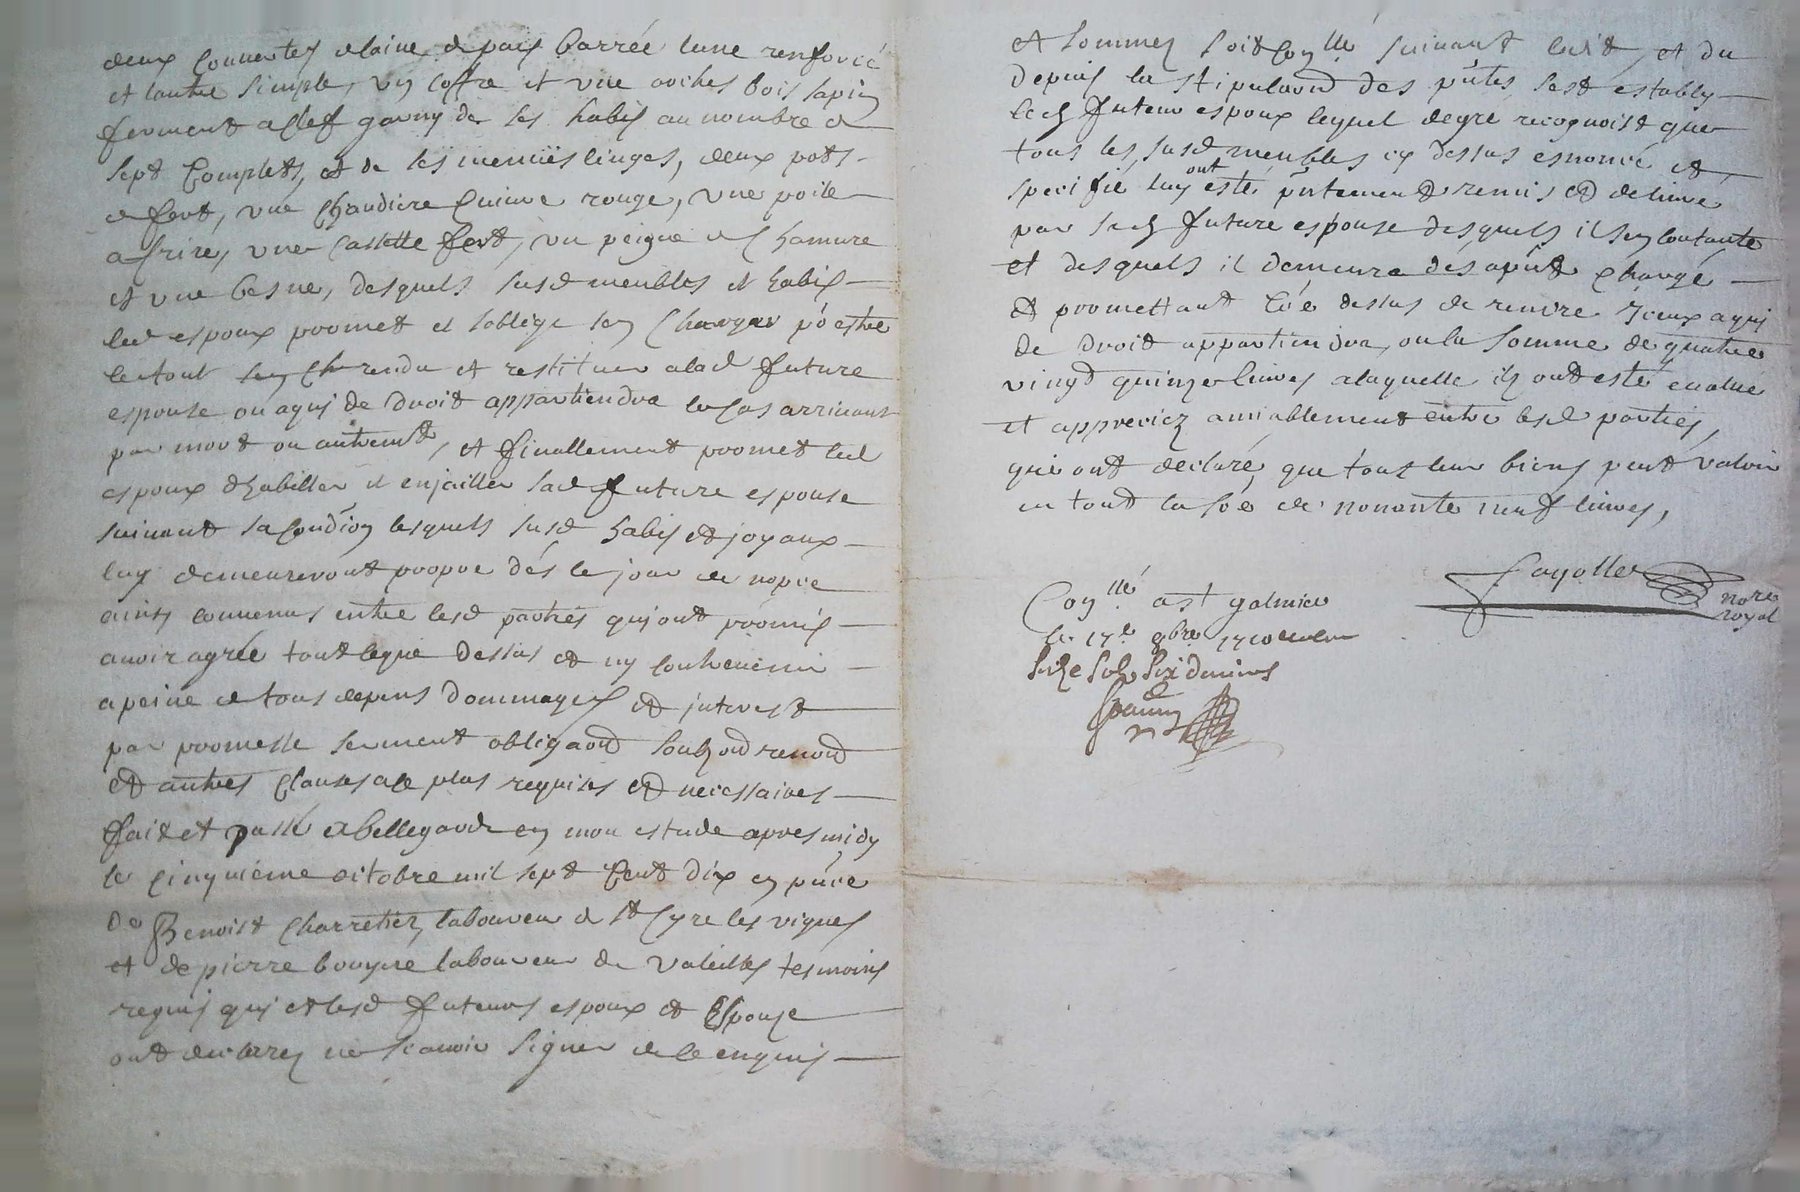 deux couvertes de laine de pais barrée lune renforcé
et lautre simple, un coffre et une arches bois sapin
ferment a clef garny de ses habis au nombre de
sept Complets, et de ses menües linges, deux pots
de fert, une Chaudiere Cuivre rouge, une poile
a frire, une Cassette fert, un peigne de Chanvre
et une besne, desquels susd meubles et habis
led espoux promet et soblige sen Charger po estre
le tout sen Ch rendu et restituer a lad future
espouse ou a qui de droit appartiendra le cas arrivant
par mort ou autremt, et finallement promet led
espoux dhabiller et enjailler sad future espouse
suivant sa condion lesquels susd habis et joyaux
luy demeureront propre dés le jour de nopce
ainsy convenus entre lesd parties qui ont promis
avoir agrée tout ce que dessus et ny contrevenir
a peine de tous depens dommages et interest
par promesse serment obligaond soubzond renond
et autres Clauses a ce plus requises et necessaires
fait et passé a bellegarde en mon estude apres midy
le cinquiéme octobre mil sept Cent dix en pnce
de Benoist Charretier, laboureur de St Cyre les vignes
et de pierre bouyere laboureur de Valeilles tesmoins
requis qui et lesd futeurs espoux et Espouze
ont declarez ne scavoir signer de ce enquis
et sommez soit Conllé suivant ledit, et du
depuis la stipulaond des pntes sest estably
led futeur espoux lequel de gré recognoist que
tous les susd meubles cy dessus esnoncé et
specifié luy ont esté pntement remis et delivré
par sad future espouse desquels il sen contante
et desquels il demeure des apnt chargé
et promettant Coe dessus de rendre iceux a qui
de droit appartiendra, ou la somme de quatre
vingt quinze livres a laquelle ils ont esté evalué
et appreciez amiablement entre lesd parties,
qui ont declaré, que tous leur biens peut valoir
en tout la soe de nonante neuf livres,
Fayolle
nore
royal
Conllé a st galmier
le 17e 9bre 1710
seize sols six deniers